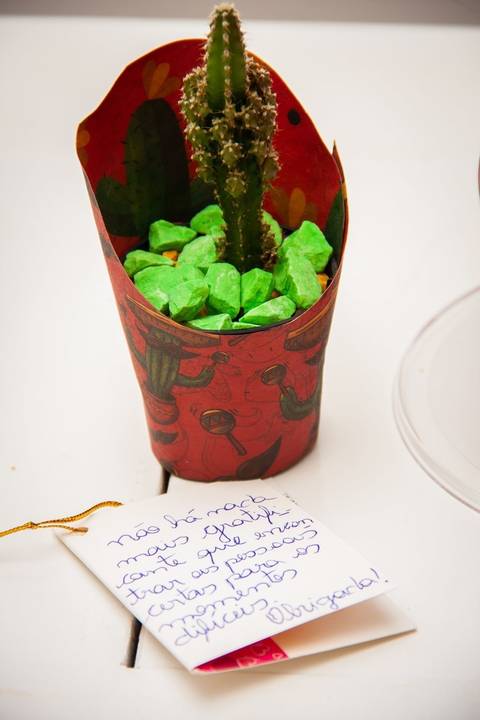 não há nada
mais gratifi-
cante que encon
trar as pessoas
certas para os
momentos
difíceis. Obrigada!